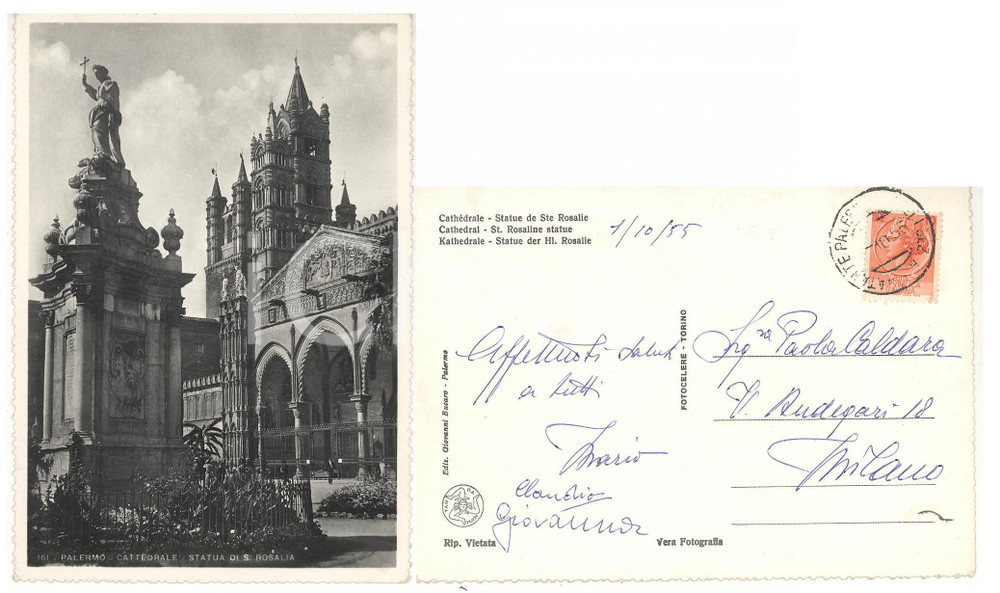 161 - PALERMO - CATTEDRALE - STATUA DI S. ROSALIA
Cathédrale - Statue de Ste Rosalie
Cathedral - St. Rosaline statue
Kathedrale - Statue der Hl. Rosalie
1/10/55
Affettuosi saluti
a tutti
Mario
Claudio
Giovanna
Ediz. Giovanni Bucaro - Palermo
Rip. Vietata
Vera Fotografia
FOTOCELERE - TORINO
Sig.ra Paola Caldara
V. Andegari 18
Milano
PALER